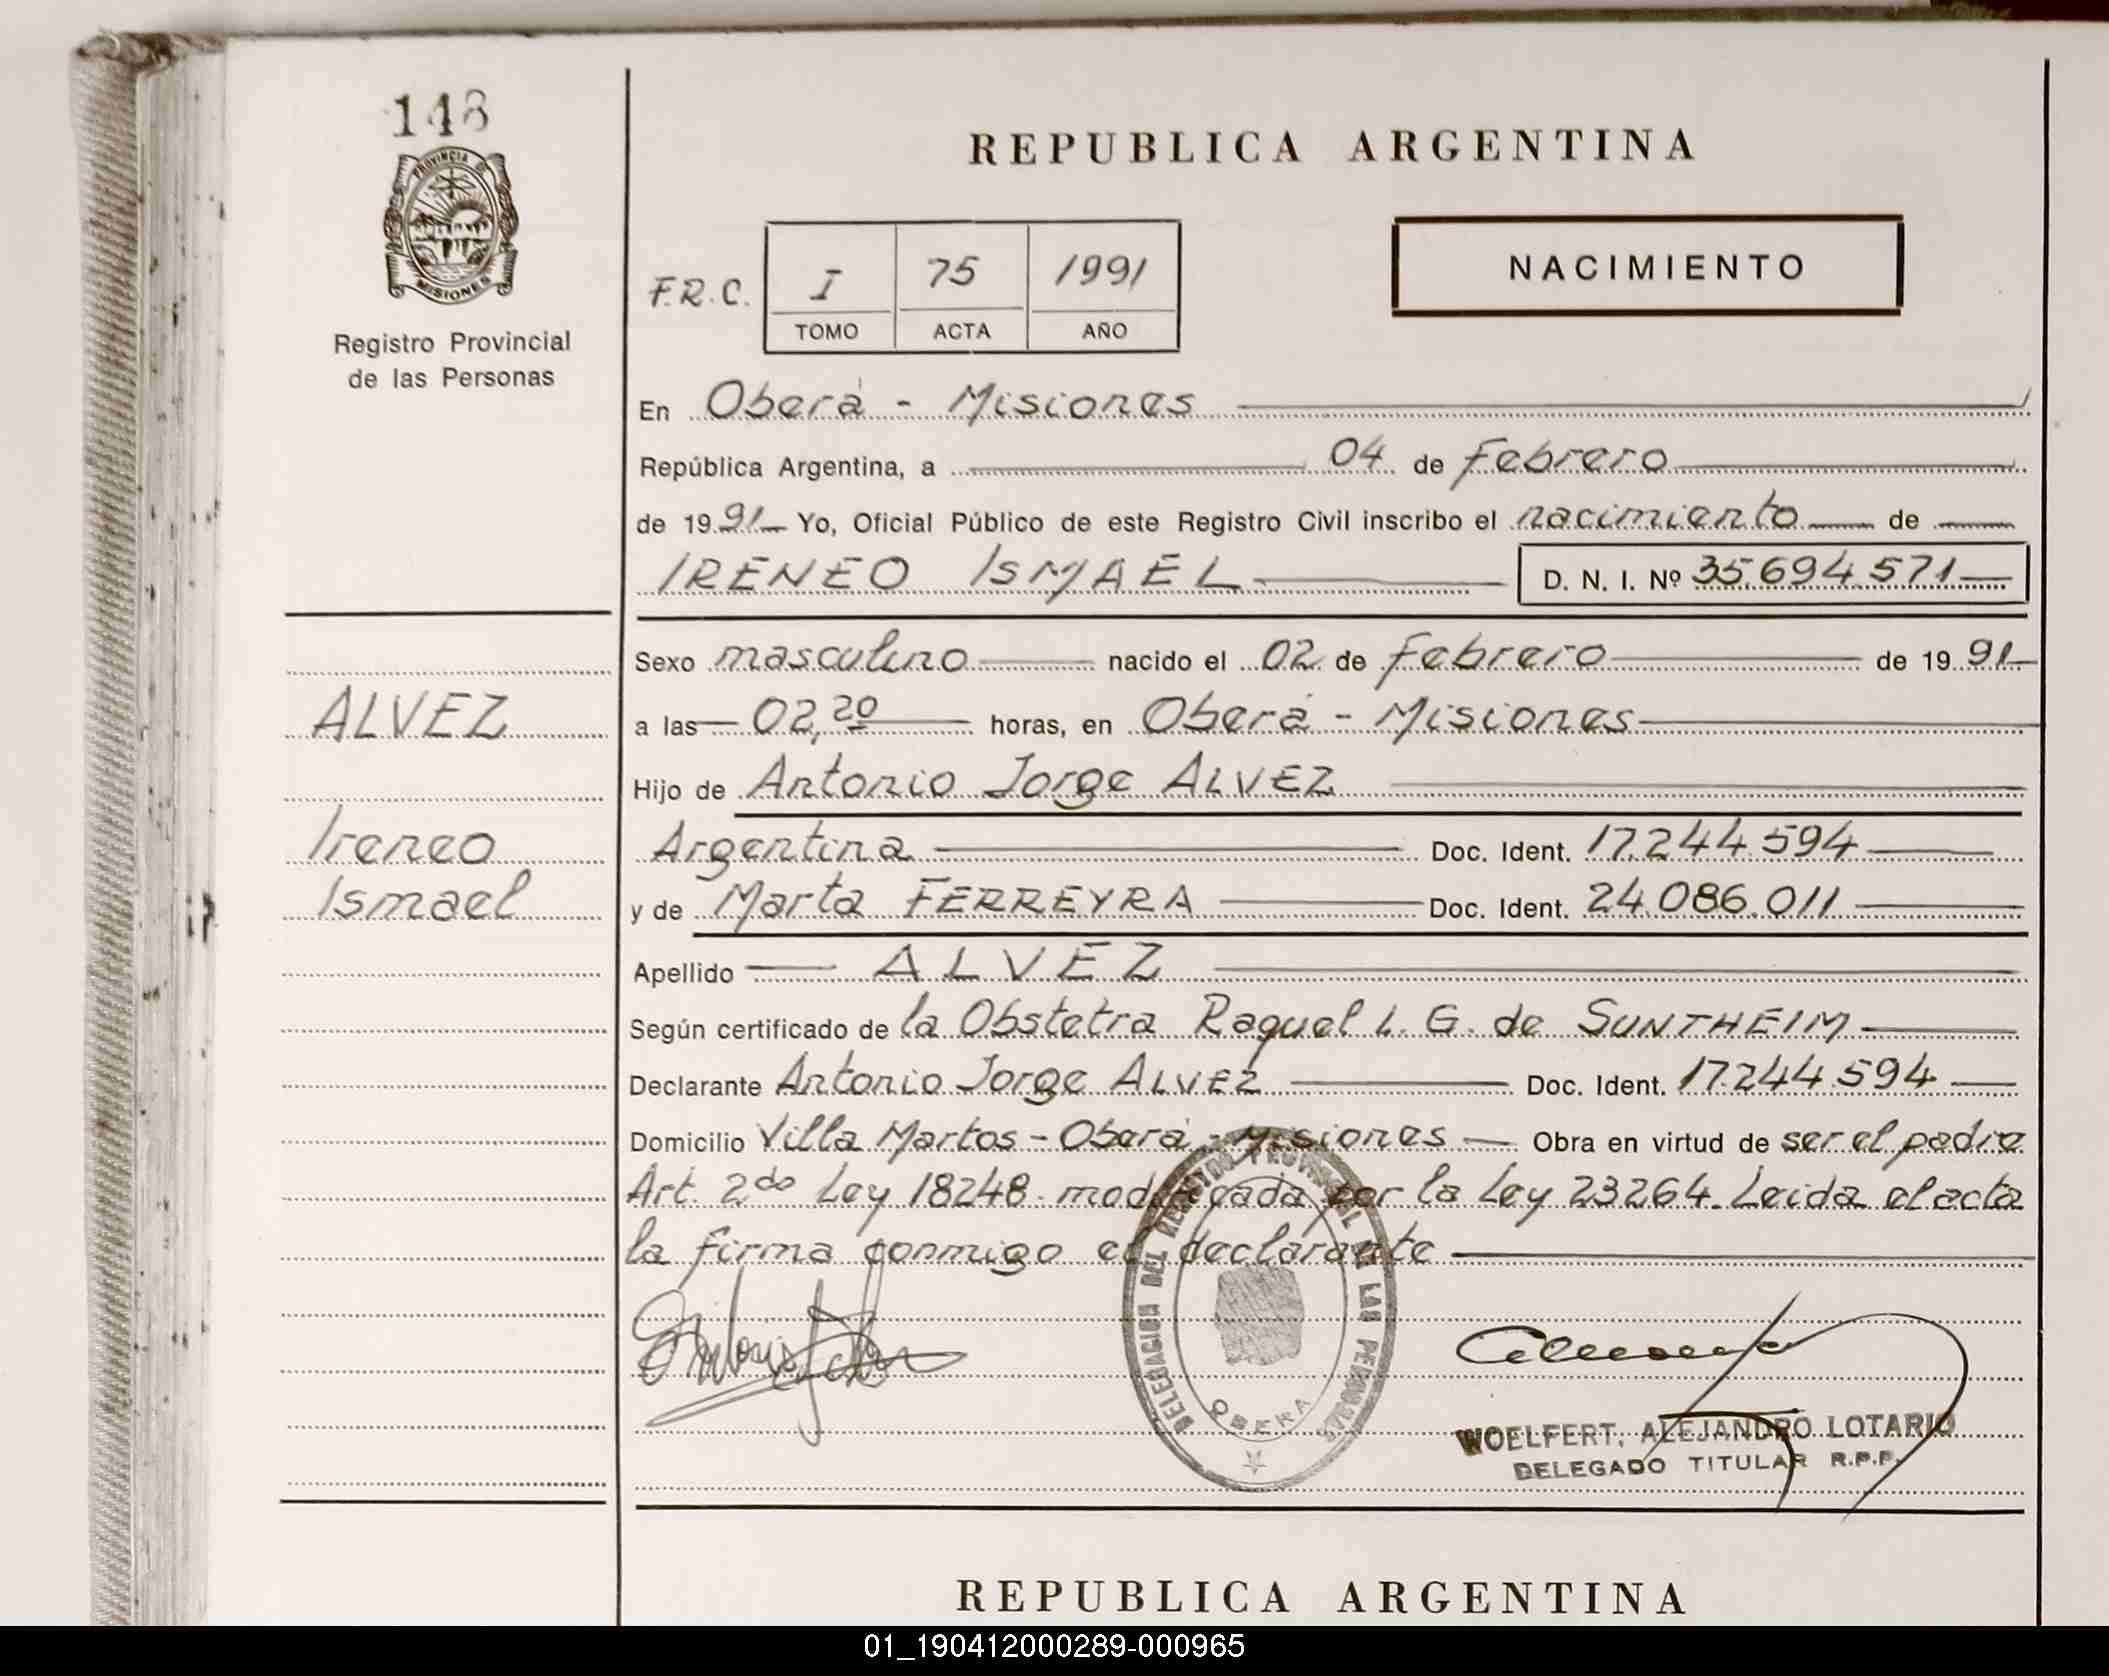 148
PROVINCIA DE
MISIONES
Registro Provincial
de las Personas
REPUBLICA ARGENTINA
NACIMIENTO
F.R.C. I 75 1991
TOMO ACTA AÑO
En Oberá - Misiones
República Argentina, a 04 de Febrero
de 1991 Yo, Oficial Público de este Registro Civil inscribo el nacimiento de
IRENEO ISMAEL D. N. I. Nº 35.694.571
ALVEZ
Ireneo
Ismael
Sexo masculino nacido el 02 de Febrero de 1991
a las 02,20 horas, en Oberá - Misiones
Hijo de Antonio Jorge ALVEZ
Argentina Doc. Ident. 17.244.594
y de Marta FERREYRA Doc. Ident. 24.086.011
Apellido ALVEZ
Según certificado de la Obstetra Raquel L. G. de SUNTHEIM
Declarante Antonio Jorge ALVEZ Doc. Ident. 17.244.594
Domicilio Villa Martos - Oberá - Misiones Obra en virtud de ser el padre
Art. 2do Ley 18248. modificada por la Ley 23264. Leida el acta
la firma conmigo el declarante
DELEGACION DEL REGISTRO PROVINCIAL DE LAS PERSONAS
OBERA
WOELFERT, ALEJANDRO LOTARIO
DELEGADO TITULAR R.P.P.
REPUBLICA ARGENTINA
01_190412000289-000965